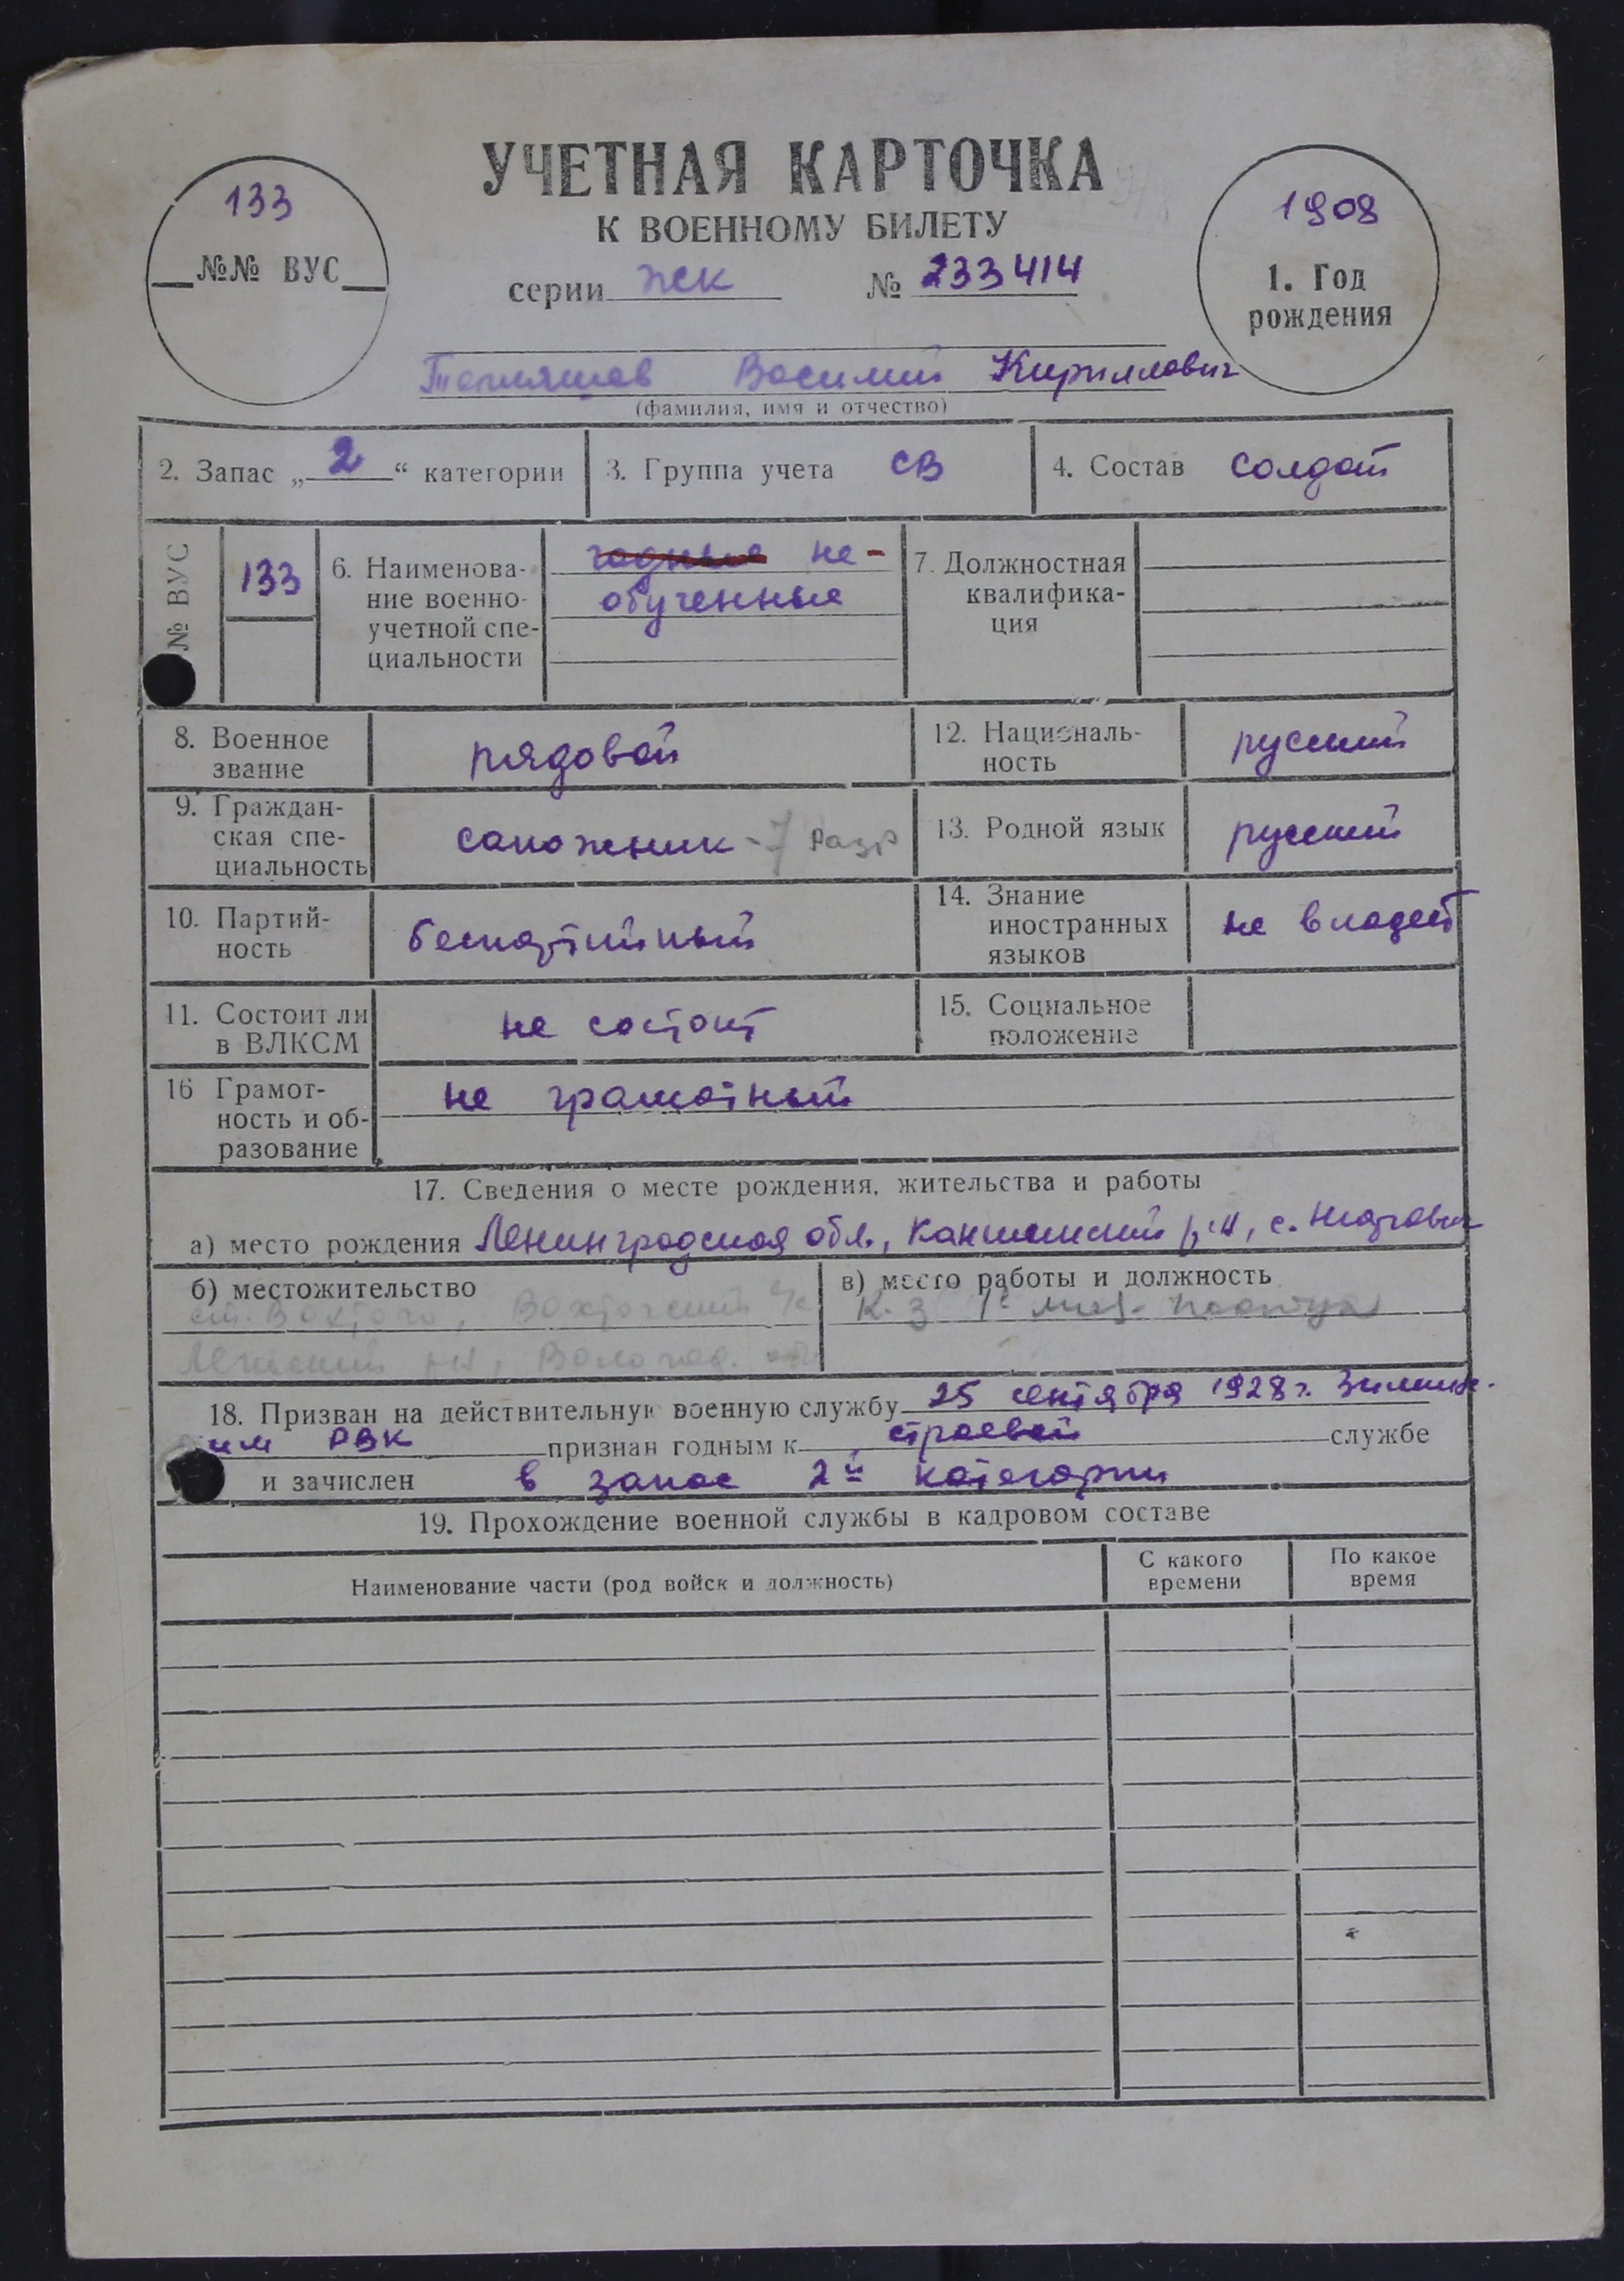 УЧЕТНАЯ КАРТОЧКА
К ВОЕННОМУ БИЛЕТУ
серии ЖК № 233414
133
№№ ВУС
1908
1. Год
рождения
Василий Кириллович
(фамилия, имя и отчество)
2. Запас „2“ категории
3. Группа учета СВ
4. Состав солдат
№ ВУС
133
6. Наименова-
ние военно-
учетной спе-
циальности
годные не-
обученные
7. Должностная
квалифика-
ция
8. Военное
звание
рядовой
12. Националь-
ность
русский
9. Граждан-
ская спе-
циальность
сапожник - 7 разр
13. Родной язык
русский
10. Партий-
ность
беспартийный
14. Знание
иностранных
языков
не владеет
11. Состоит ли
в ВЛКСМ
не состоит
15. Социальное
положение
16 Грамот-
ность и об-
разование
не грамотный
17. Сведения о месте рождения, жительства и работы
а) место рождения Ленинградская обл, р-н, с.
б) местожительство
ст. Вохтога, Вохтожский
р-н, Волог
в) место работы и должность
К-з
18. Призван на действительную военную службу 25 сентября 1928 г.
РВК признан годным к строевой службе
и зачислен в запас 2й категории
19. Прохождение военной службы в кадровом составе
Наименование части (род войск и должность)
С какого
времени
По какое
время